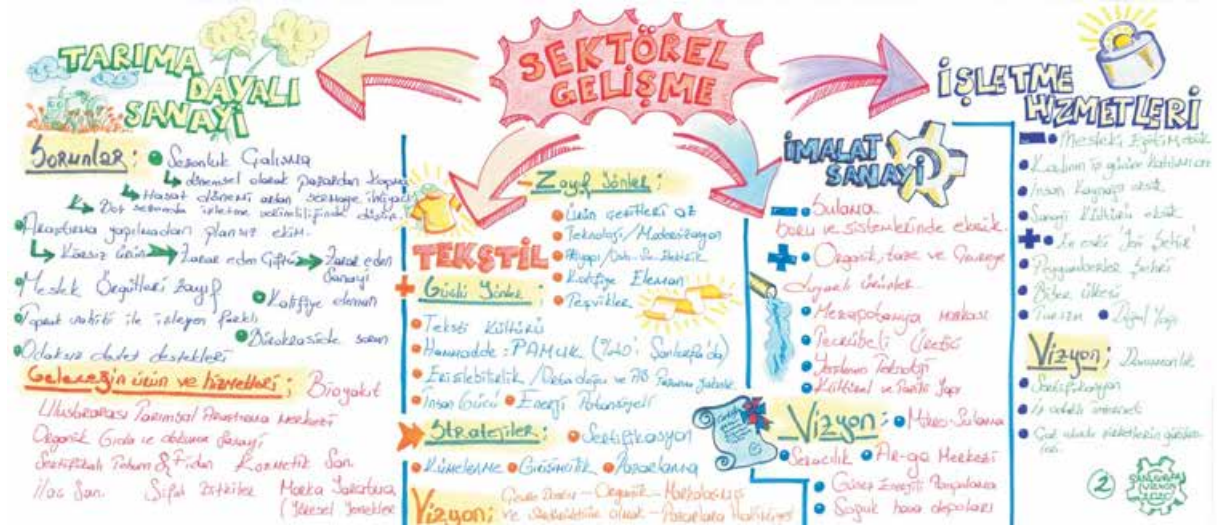 SEKTÖREL
GELİŞME
TARIMA
DAYALI
SANAYİ
Sorunlar:
Sezonluk Çalışma
dönemsel olarak pazardan kopma
Hasat dönemi artan sermaye ihtiyacı
işletme verimliliğinde düşüş.
Araştırma yapılmadan plansız ekim.
ürün Zarar eden Çiftçi Zarar eden
Sanayi
Meslek Örgütleri zayıf
Kalifiye eleman
Toprak sahibi ile işleyen farklı
Bürokraside sorun
Odaksız devlet destekleri
Geleceğin ürün ve hizmetleri; Biyoyakıt
Uluslararası Tarımsal Araştırma Merkezi
Organik Gıda ve dokuma Sanayi
Sertifikalı Tohum & Fidan Kozmetik San.
İlaç San. Şifalı Bitkiler Marka Yaratma
(Yöresel Yemekler
TEKSTİL
Zayıf Yönler;
Ürün çeşitleri az
Teknoloji/Modernizasyon
Kalifiye Eleman
Teşvikler
+ Güçlü Yönler:
Tekstil Kültürü
Hammadde: PAMUK (%40'ı Şanlıurfa'da)
Erişilebilirlik / Orta doğu ve
İnsan Gücü Enerji Potansiyeli
Stratejiler:
Sertifikasyon
Kümelenme Girişimcilik Pazarlama
Vizyon; Çevre Dostu - Organik - Markalaşmış
ve olmak - Pazarlara Hakimiyet
İMALAT
SANAYİ
- Sulama
boru ve sistemlerinde eksik.
+ Organik, taze ve Çevreye
duyarlı ürünler.
Mezapotamya markası
Tecrübeli Üretici
Teknoloji
Kültürel ve Tarihi Yapı
Vizyon: Mikro-Sulama
Seracılık Ar-ge Merkezi
Güneş Enerjisi
Soğuk hava depoları
İŞLETME
HİZMETLERİ
- Mesleki Eğitim eksik
Kadının iş gücüne katılımı az
İnsan kaynağı eksik
Sanayi Kültürü eksik
+ En eski
Peygamberler Şehri
Biber ülkesi
Turizm Doğal Yapı
Vizyon; Danışmanlık
Sertifikasyon
Çok uluslu şirketlerin
2
ŞANLIURFA
VİZYON